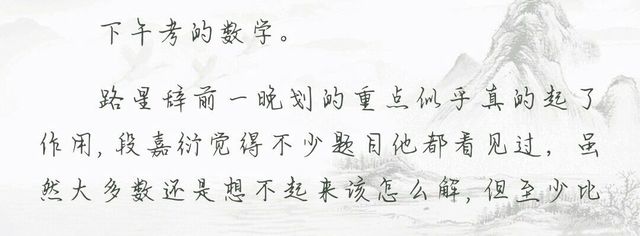 下午考的数学。
路星辞前一晚划的重点似乎真的起了
作用,段嘉衍觉得不少题目他都看见过，虽
然大多数还是想不起来该怎么解,但至少比